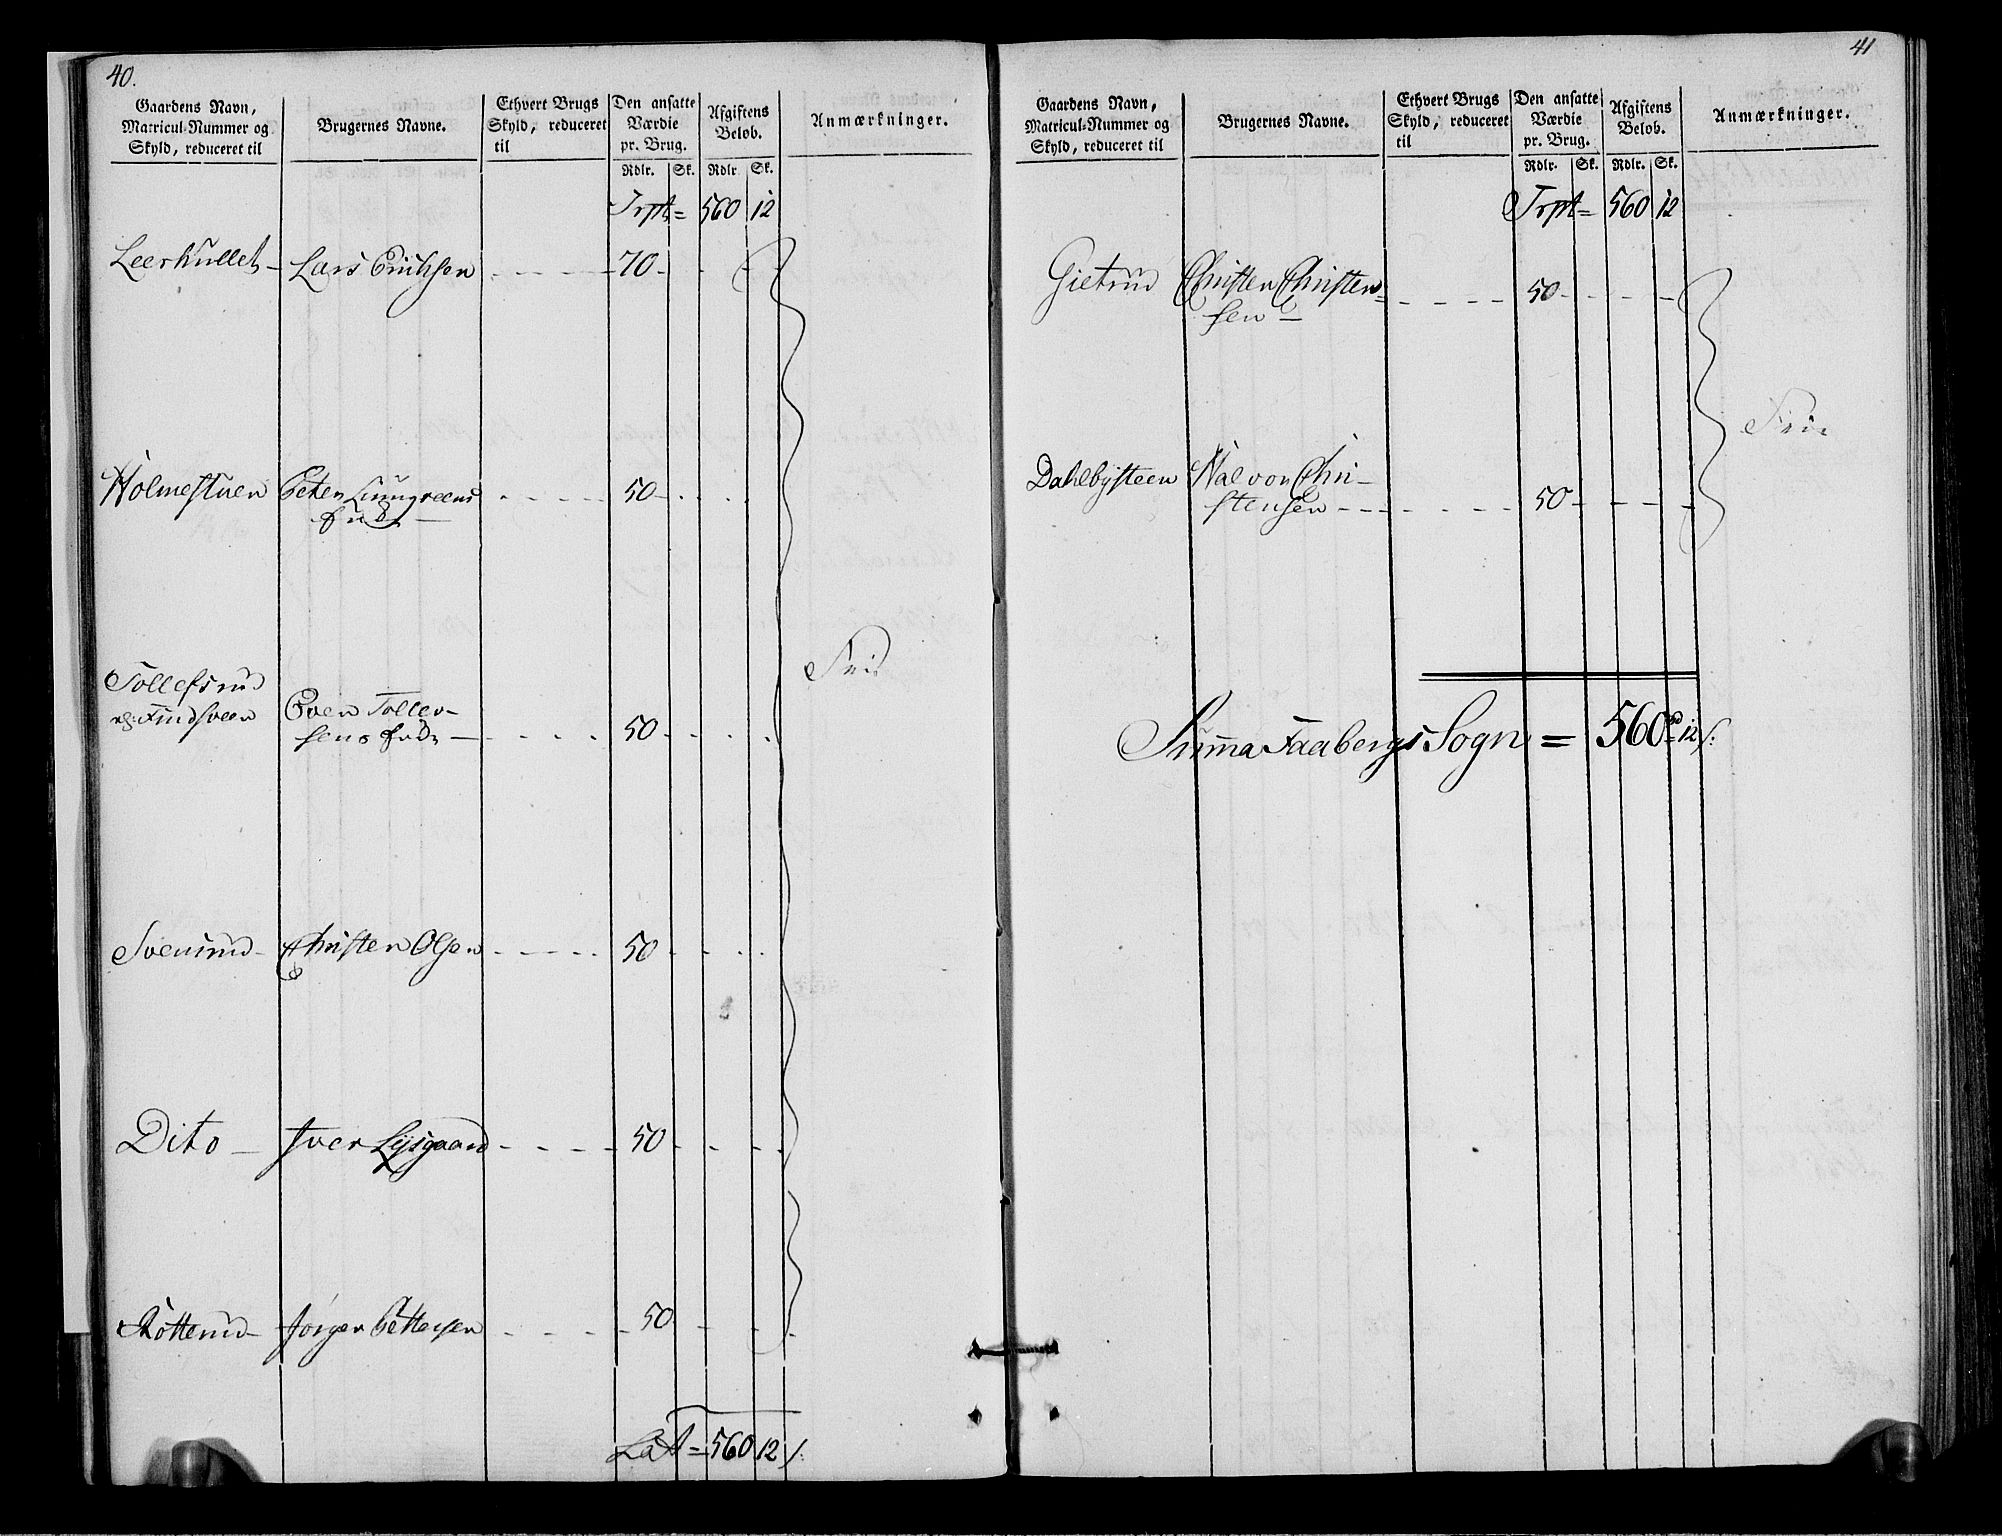 40.
Gaardens Navn, Matricul-Nummer og Skyld, reduceret til | Brugernes Navne. | Ethvert Brugs Skyld, reduceret til | Den ansatte Værdie pr. Brug. | Afgiftens Beløb. | Anmærkninger.
Rdlr. Sk. Rdlr. Sk.
Trpt = 560 12
Leerhullet - Lars Erichsen 70
Holmestuen Peter Liungreens
Enke 50
Tollefsrud
Even Tollev-
sens Enke 50
Frie
Svensrud - Christen Olsen 50
Dito - Iver Lysgaard 50
Rotterud - Jørgen Pettersen 50
Lat = 560 12 s:
41
Gaardens Navn, Matricul-Nummer og Skyld, reduceret til | Brugernes Navne. | Ethvert Brugs Skyld, reduceret til | Den ansatte Værdie pr. Brug. | Afgiftens Beløb. | Anmærkninger.
Rdlr. Sk. Rdlr. Sk.
Trpt = 560 12
Gietrud Christen Christen=
sen 50
Frie
Dahlbysteen Halvor Chri-
stensen 50
Summa Faabergs Sogn = 560 rd 12 s: